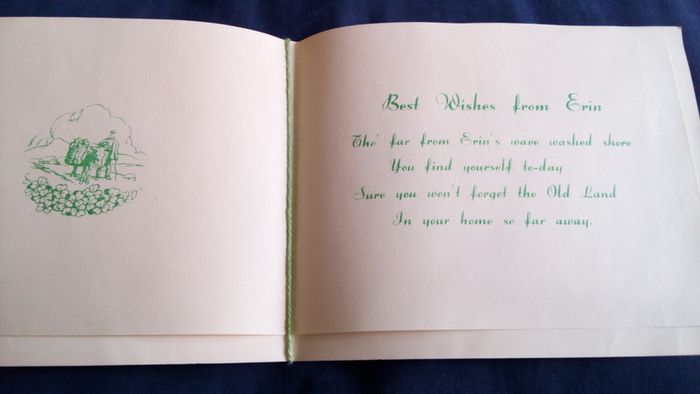 Best Wishes from Erin
Tho' far from Erin's wave washed shore
You find yourself to-day
Sure you won't forget the Old Land
In your home so far away.